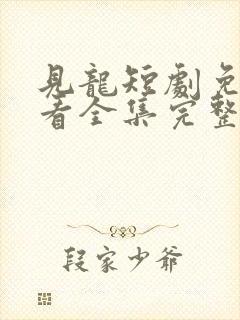 見龍短劇免
看全集完整
段家少爺